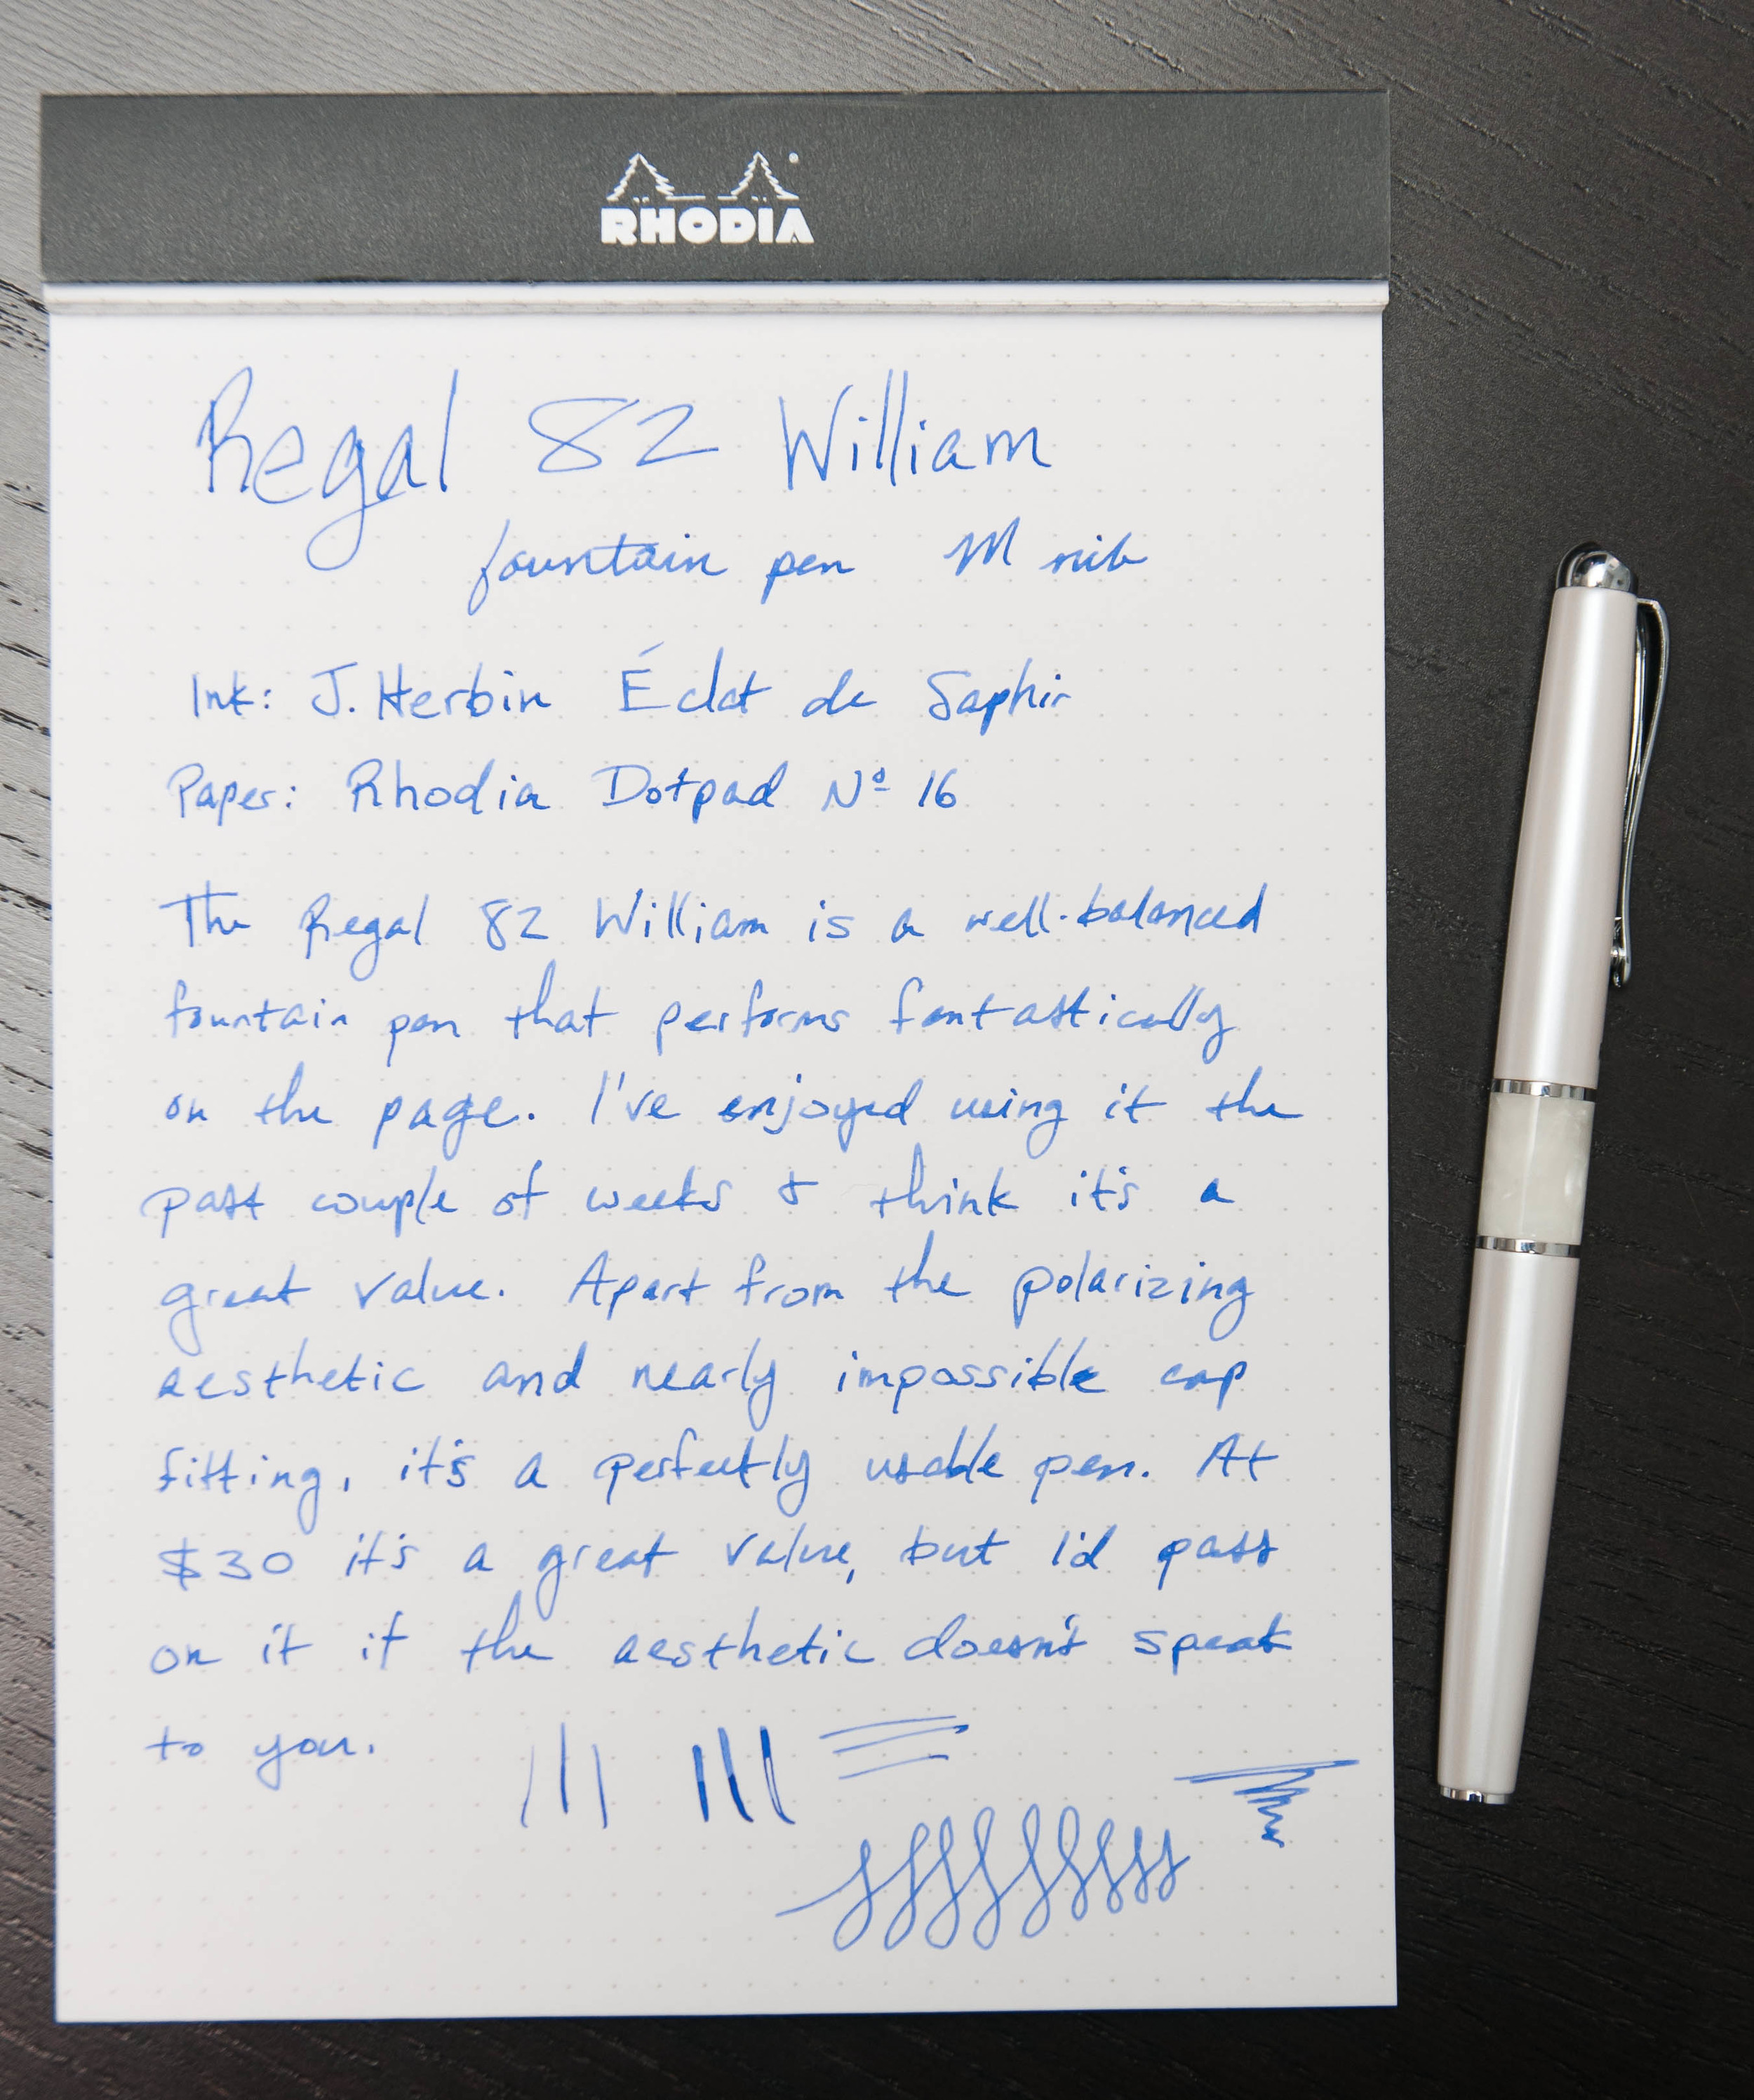 RHODIA
Regal 82 William
fountain pen M nib
Ink: J. Herbin Éclat de Saphir
Paper: Rhodia Dotpad Nº 16
The Regal 82 William is a well-balanced
fountain pen that performs fantastically
on the page. I've enjoyed using it the
past couple of weeks & think it's a
great value. Apart from the polarizing
aesthetic and nearly impossible cap
fitting, it's a perfectly usable pen. At
$30 it's a great value, but I'd pass
on it if the aesthetic doesn't speak
to you.